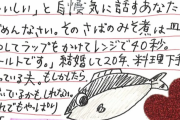 いしい」と自慢気に話すあなた
めんなさい。そのさばのみそ煮は皿
してラップをかけてレンジで40秒。
ールトです。」結婚して20年、料理下手
っている夫。もしかしたら、
ているかもしれない。
れでもやっぱり